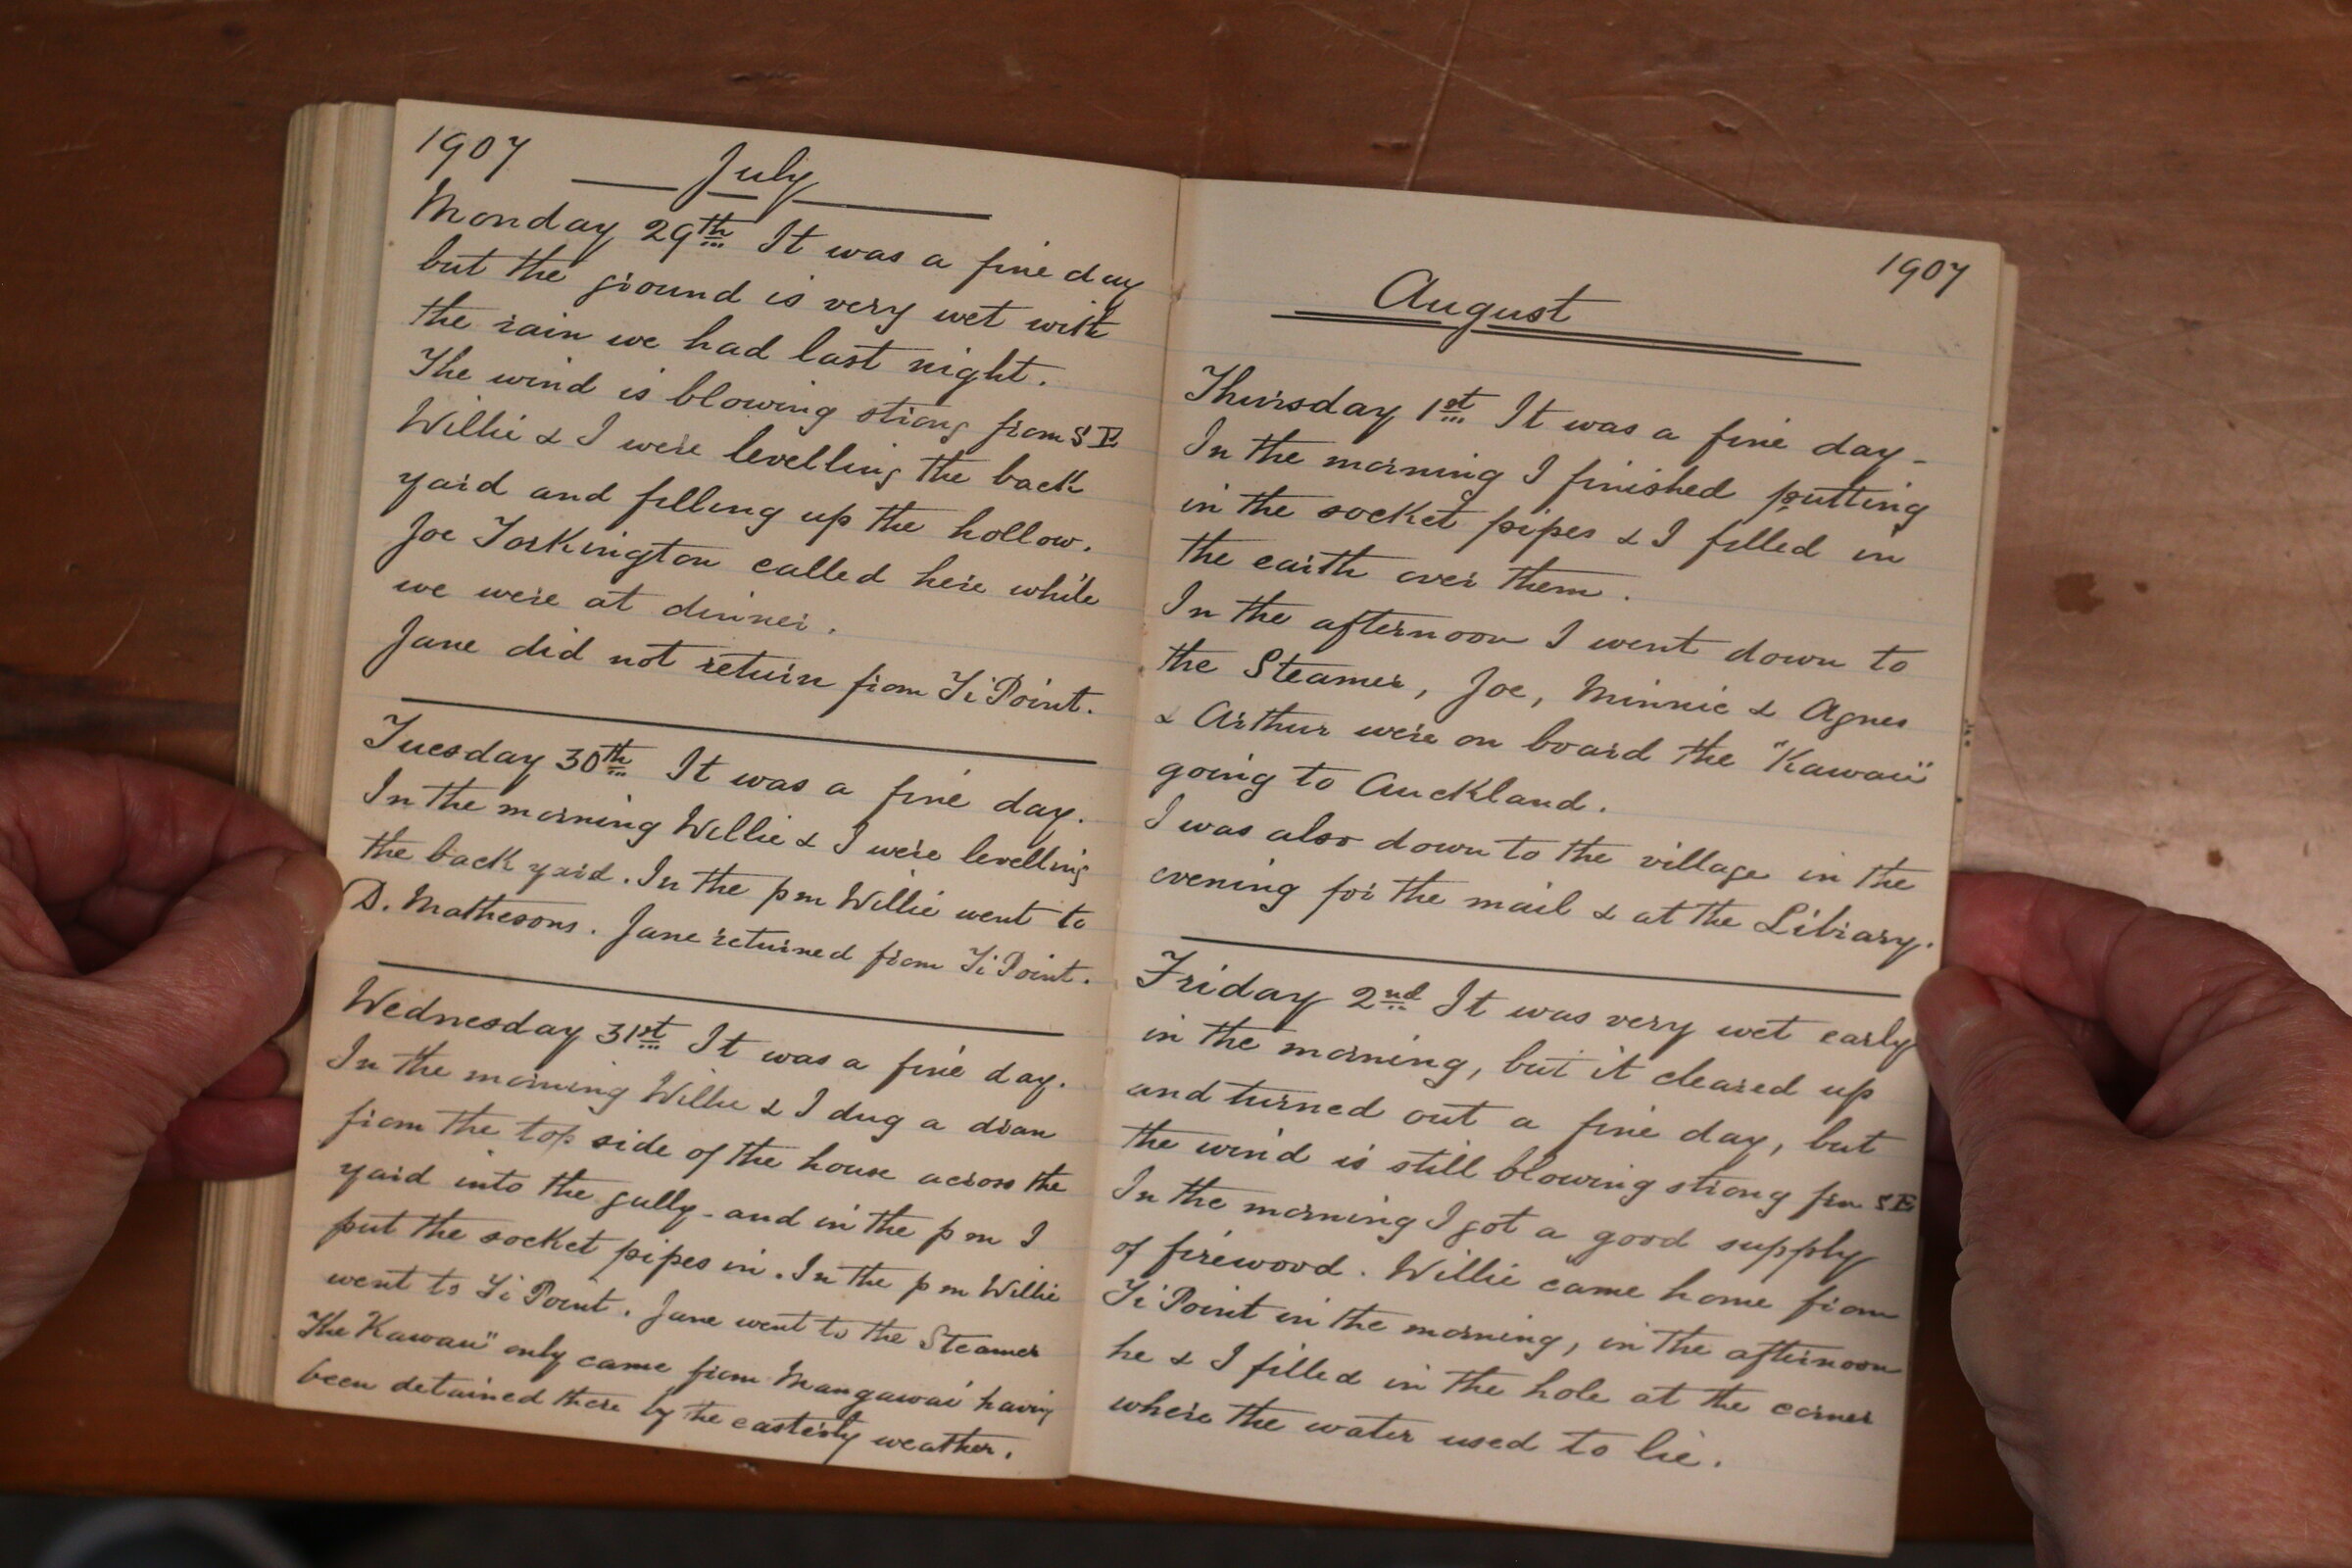 1907
July
Monday 29th It was a fine day
but the ground is very wet with
the rain we had last night.
The wind is blowing strong from S E
Willie & I were levelling the back
yard and filling up the hollow.
Joe Torkington called here while
we were at dinner.
Jane did not return from Ti Point.
Tuesday 30th It was a fine day.
In the morning Willie & I were levelling
the back yard. In the pm Willie went to
D. Mathesons. Jane returned from Ti Point.
Wednesday 31st It was a fine day.
In the morning Willie & I dug a dran
from the top side of the house across the
yard into the gully - and in the pm I
put the socket pipes in. In the pm Willie
went to Ti Point. Jane went to the Steamer
The Kawau" only came from Mangawai having
been detained there by the easterly weather.
1907
August
Thursday 1st It was a fine day -
In the morning I finished putting
in the socket pipes & I filled in
the earth over them.
In the afternoon I went down to
the Steamer, Joe, Minnie & Agnes
& Arthur were on board the "Kawau"
going to Auckland.
I was also down to the village in the
evening for the mail & at the Library.
Friday 2nd It was very wet early
in the morning, but it cleared up
and turned out a fine day, but
the wind is still blowing strong fm S E
In the morning I got a good supply
of firewood. Willie came home from
Ti Point in the morning, in the afternoon
he & I filled in the hole at the corner
where the water used to lie.